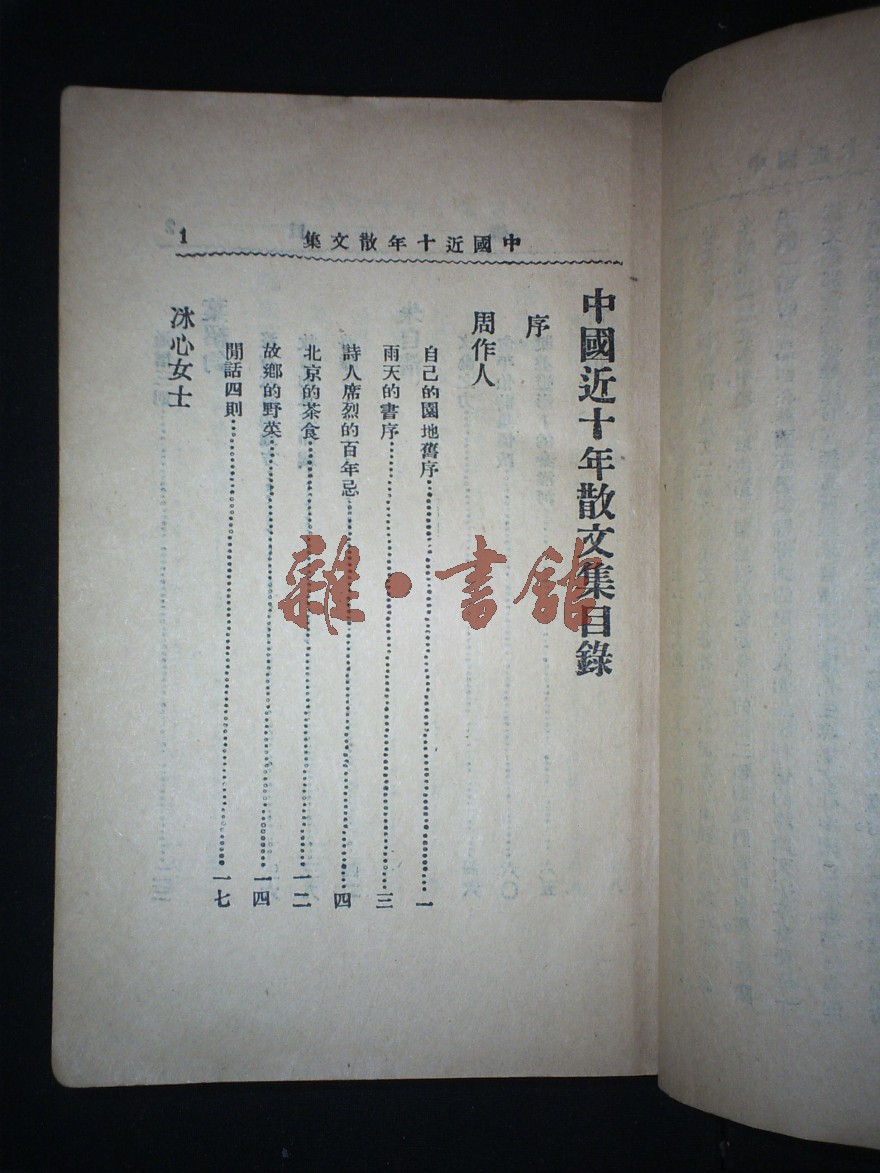 中國近十年散文集
1
中國近十年散文集目錄
序
周作人
自己的園地舊序 一
雨天的書序 三
詩人席烈的百年忌 四
北京的茶食 一二
故鄉的野菜 一四
閒話四則 一七
冰心女士
雜·書舘